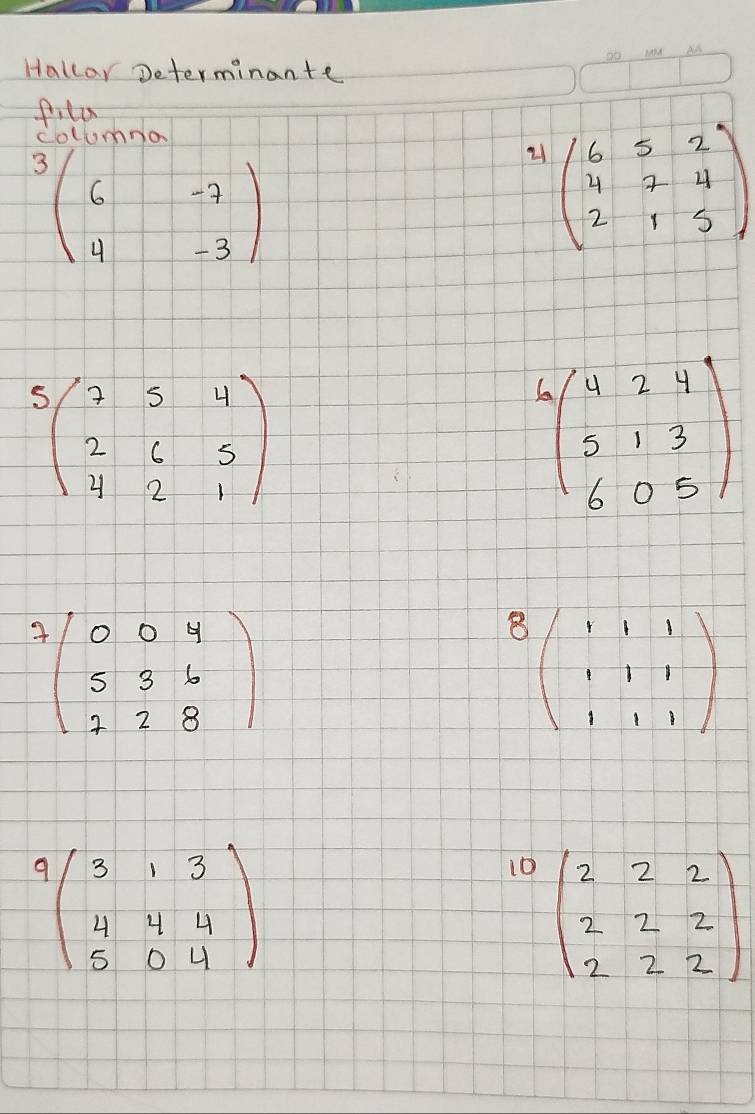 DD MM AA
Hallar Determinante
fila
columna
3
6 -7
4 -3
4
6 5 2
4 7 4
2 1 5
5
7 5 4
2 6 5
4 2 1
6
4 2 4
5 1 3
6 0 5
7
0 0 4
5 3 6
7 2 8
8
1 1 1
1 1 1
1 1 1
9
3 1 3
4 4 4
5 0 4
10
2 2 2
2 2 2
2 2 2